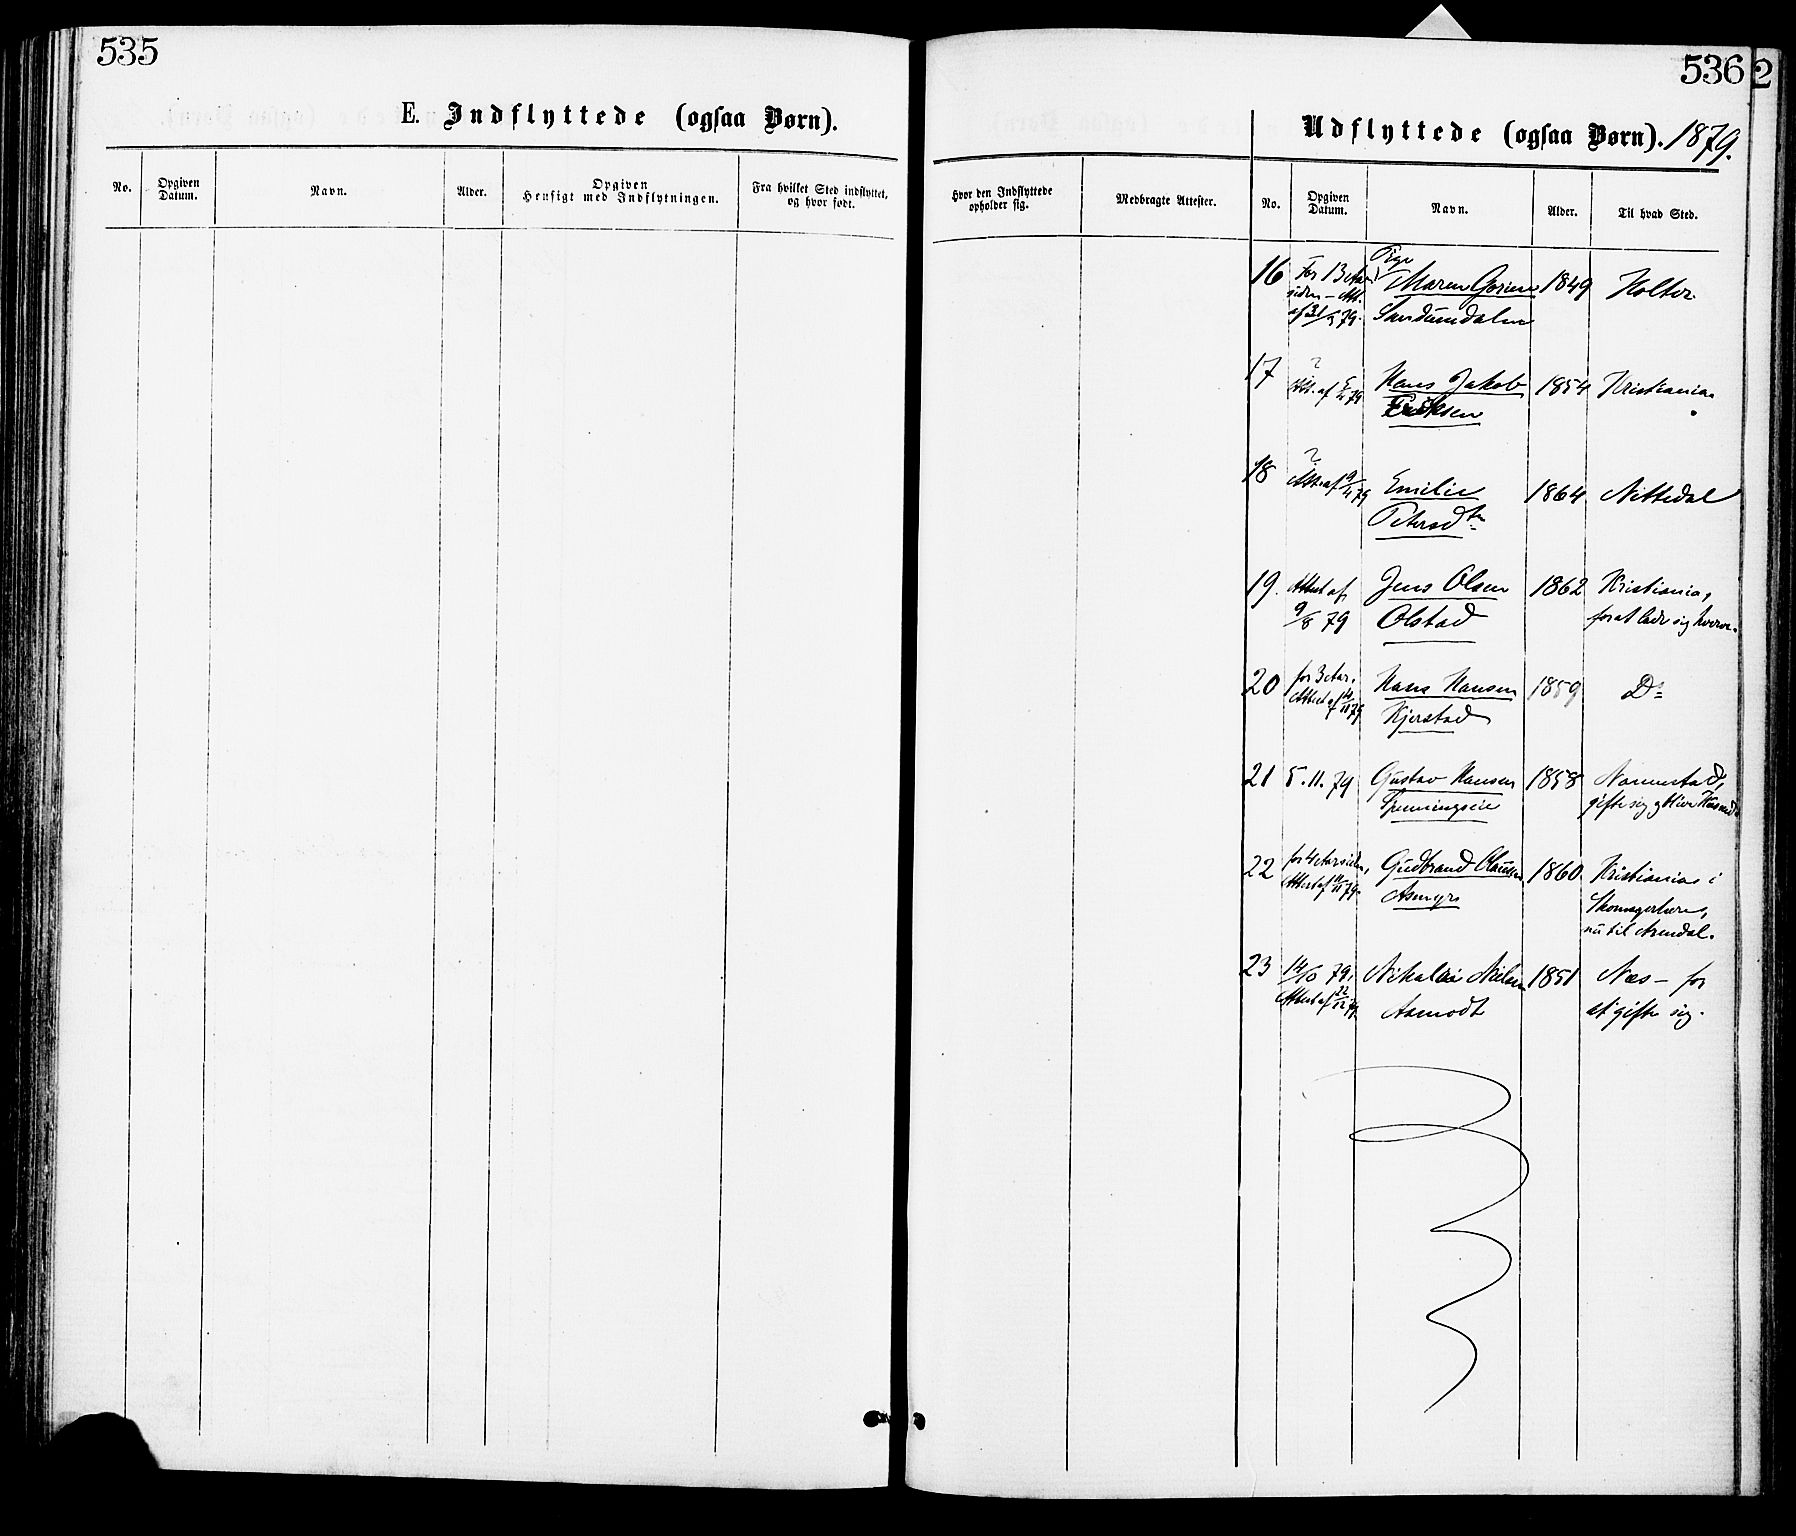 535
E. Indflyttede (ogsaa Børn).
No.
Opgiven
Datum.
Navn.
Alder.
Opgiven
Hensigt med Indflytningen.
Fra hvilket Sted indflyttet,
og hvor født.
536
2
Udflyttede (ogsaa Børn). 1879.
Hvor den Indflyttede
opholder sig.
Medbragte Attester.
No.
Opgiven
Datum.
Navn.
Alder.
Til hvad Sted.
Pige
16 For 13 Aar Maren 1849 Holter
siden – Att.
af 31/5 79.
17 ? Hans Jakob 1854 Kristiania
Att. af 5/4 79 Eriksen
18 ?
Att. af 9/4 79 Emilie 1864 Nittedal
Petersdtr
19. Attest af Jens Olsen 1862 Kristiania,
9/8 79 Olstad for at lade sig hverve.
20 for 3 Aar. Hans Hansen 1859 Do
Attest af 79 Kjerstad
21 5.11.79 Gustav Hansen 1858 Nannestad,
gifte sig
22 for 4 Aar siden, Gudbrand Olausen 1860 Kristiania i
Attest af 79. Asmyr Skomagerlære,
nu til Arendal.
23 14/10 79. Nikolai Nielsen 1851 Næs – for
Attest af 22/12 79 Asmodt at gifte sig.